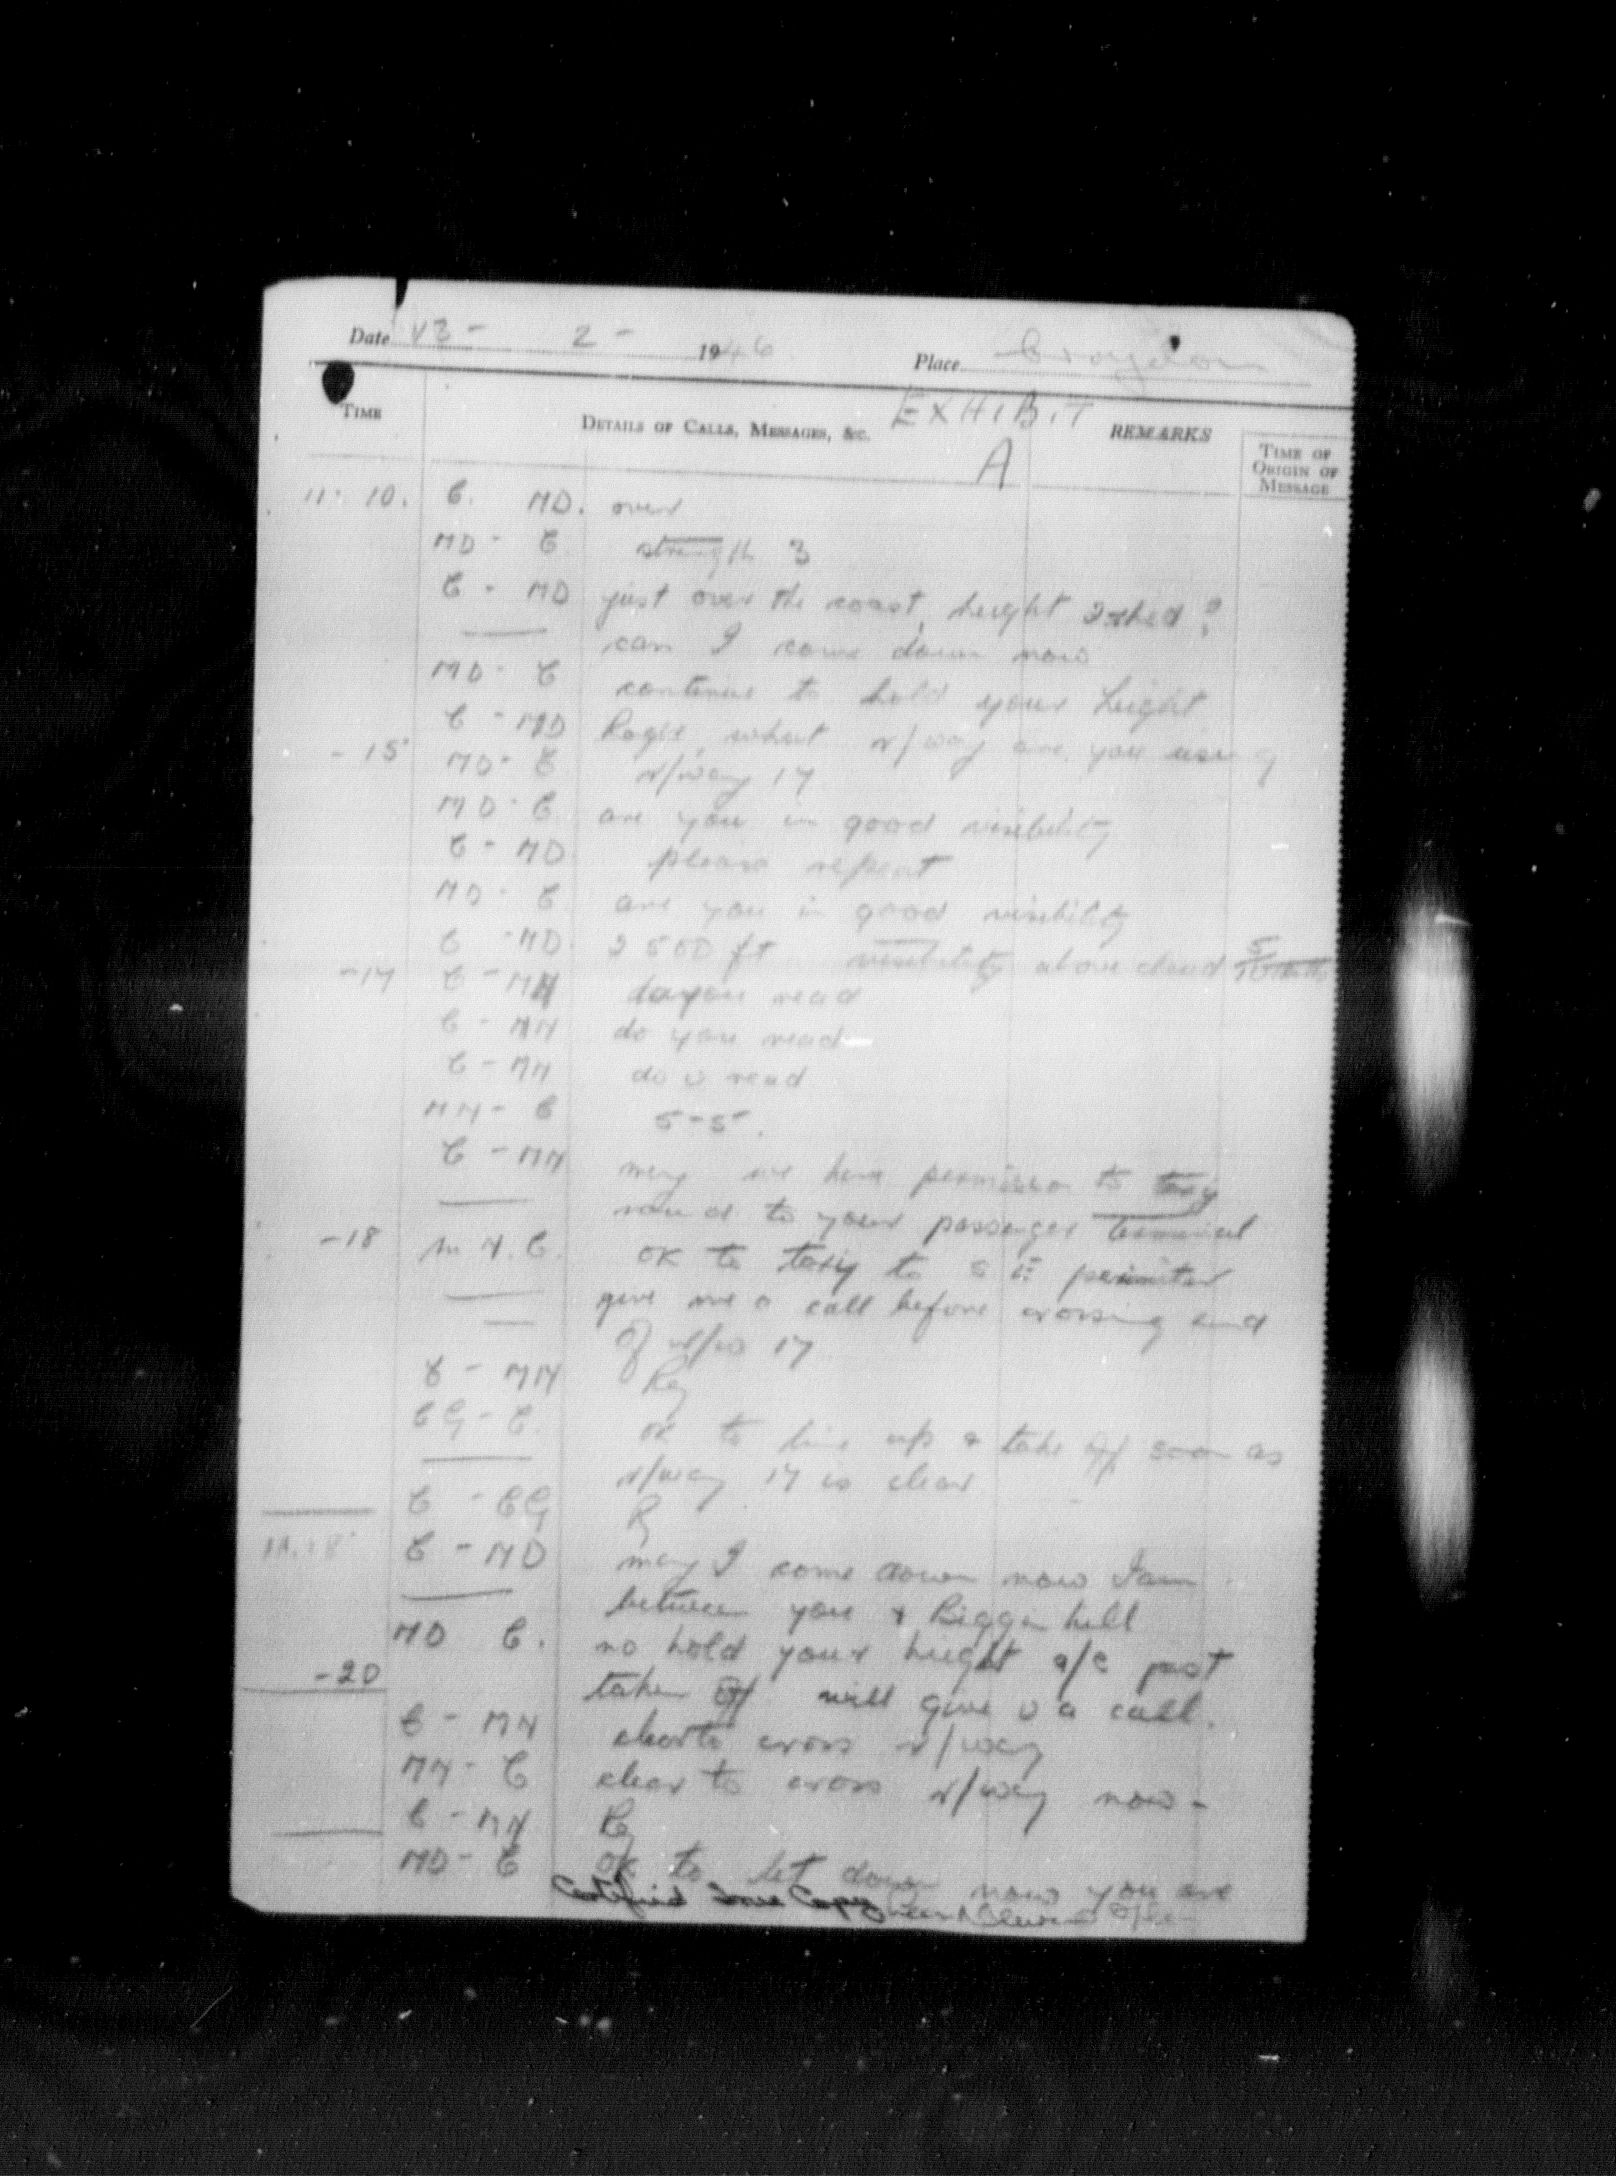 Date 13 - 2 - 1946 Place Croydon
TIME DETAILS OF CALLS, MESSAGES, &c. EXHIBIT A REMARKS TIME OF ORIGIN OF MESSAGE
11. 10. C. MD. over
MD - C strength 3
C - MD just over the coast, height ?
can I come down now
MD - C continue to hold your height
C - MD Roger, what r/way are you using
- 15 MD - C r/way 17
MD - C are you in good visibility
C - MD please repeat
MD - C are you in good visibility
C - MD. 2500 ft visibility above cloud 5/10ths
- 17 C - MN do you read
C - MN do you read
C - MN do u read
MN - C 5 - 5.
C - MN may we have permission to taxy
round to your passenger terminal
- 18 MN. C. OK to taxy to S E perimiter
give me a call before crossing end
of r/w 17
C - MN Rg
CG - C. OK to line up & take off soon as
r/way 17 is clear
C - CG Rg
11.18 C - MD may I come down now I am
between you & Biggin hill
MD C. no hold your height a/c just
- 20 taken off will give u a call.
C - MN clear to cross r/way
MN - C clear to cross r/way now -
C - MN Rg
MD - C OK to let down now you are
Certified True Copy